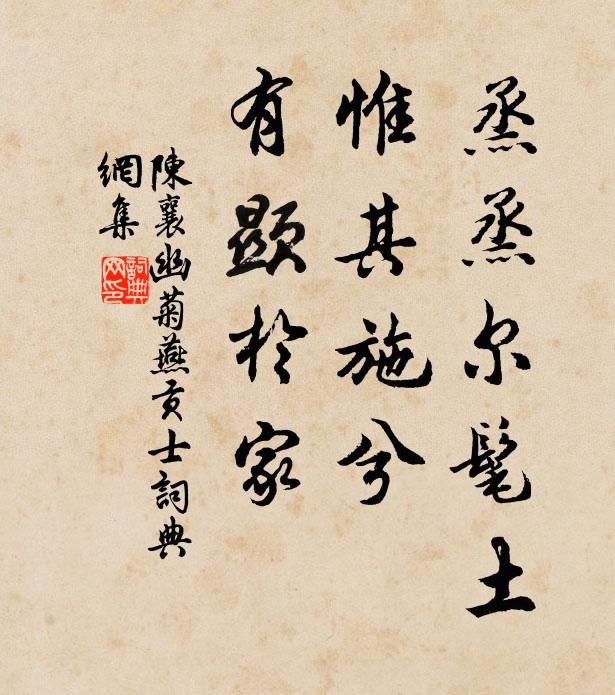 烝烝尔髦士
惟其施兮
有顯於家
陳襄幽菊燕貢士詞典
網集
詞典
网印